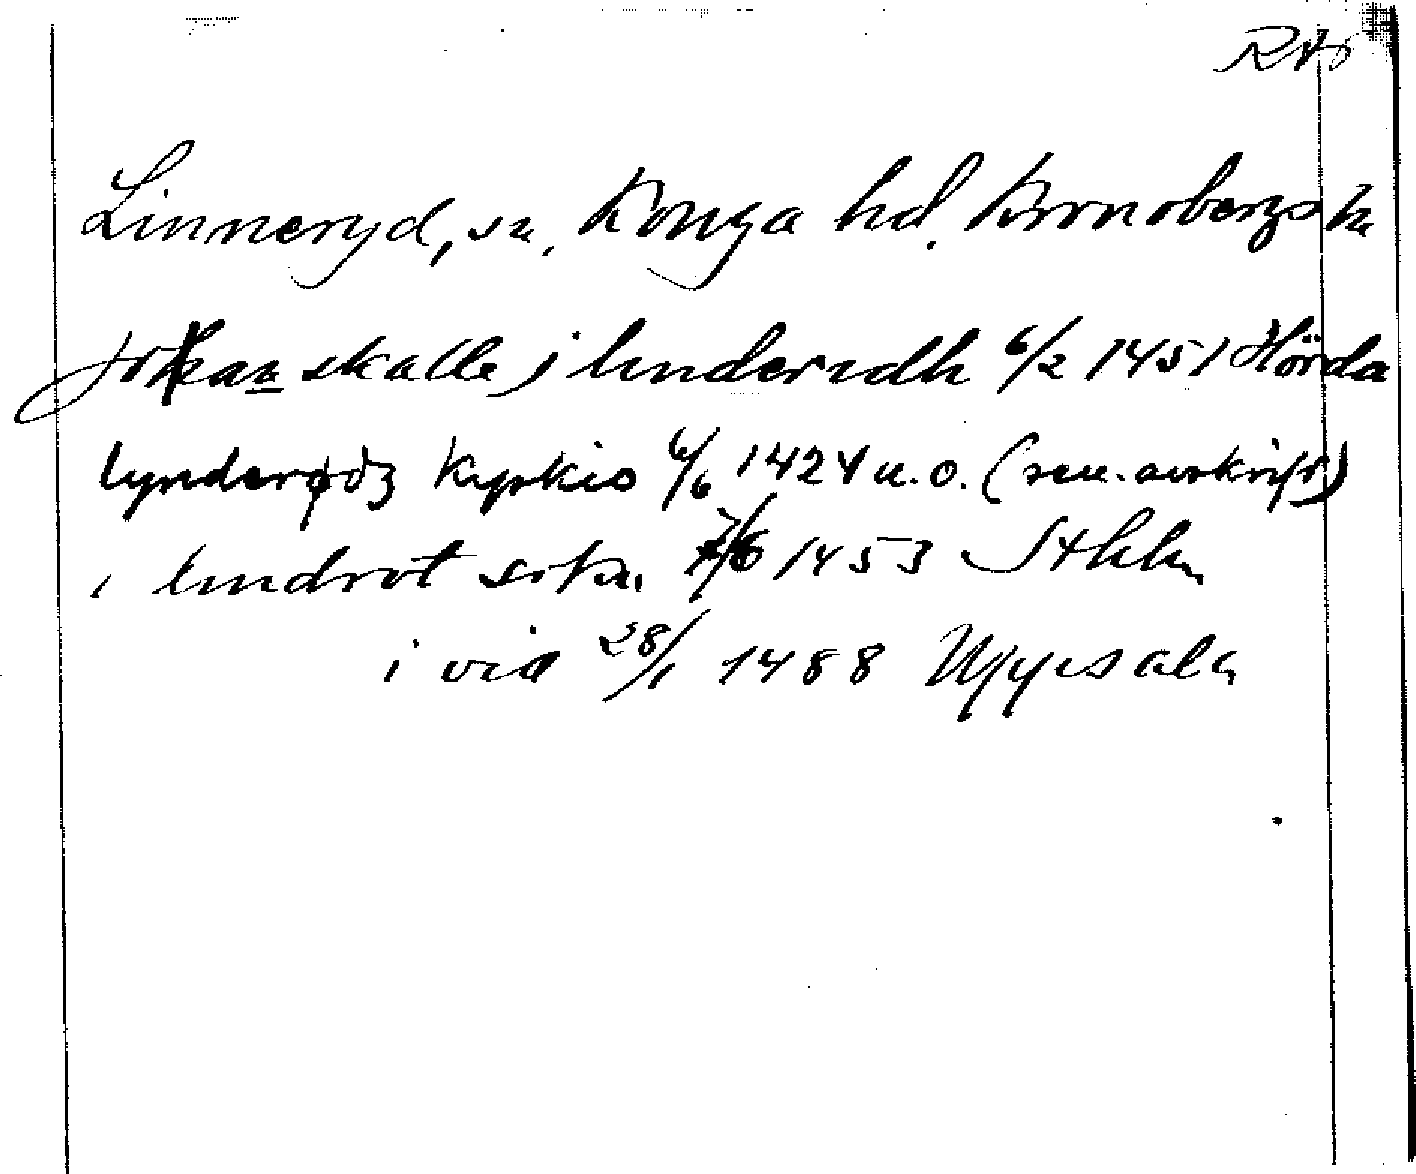 RAö
Linneryd, sn, Konga hd. Kronobergs ln
Johan skalle j linderydh 6/2 1451 Hörda
lynderødz kyrkio 6/6 1424 u. o. (sen. avskrift)
i lindrot sokn 7/6 1453 Sthlm
i vid 28/1 1488 Uppsala